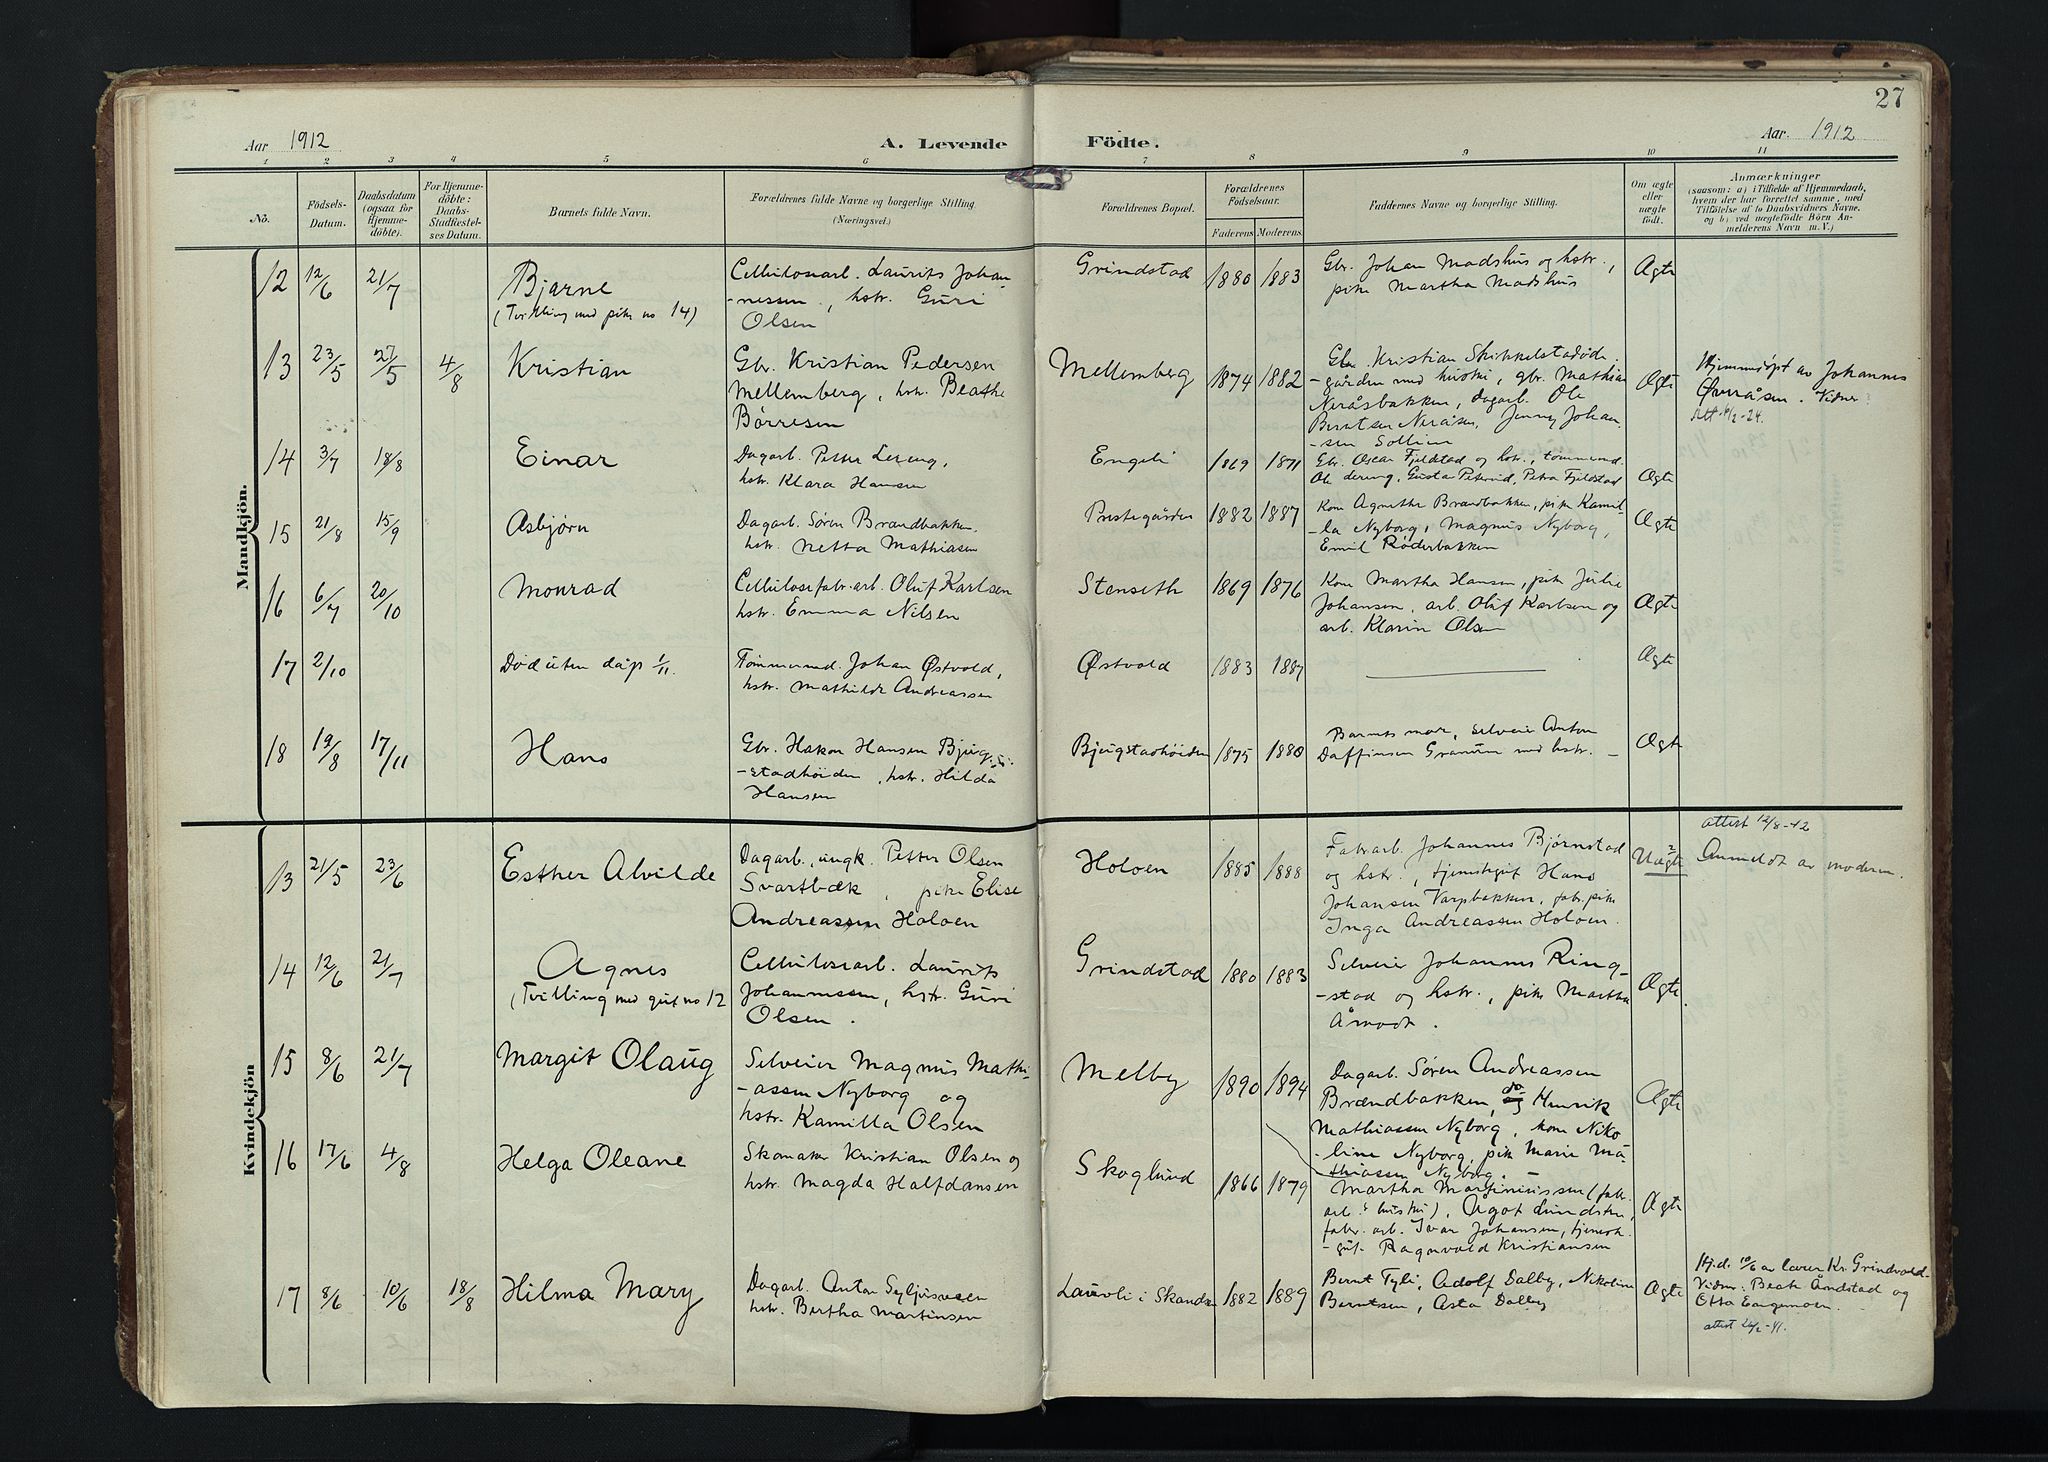 27
Aar 1912
A. Levende
Födte.
Aar. 1912
1 2 3 4 5 6 7 8 9 10 11
No.
Födsels-
Datum.
Daabsdatum
(ogsaa for
Hjemme-
döbte).
For Hjemme-
döbte:
Daabs-
Stadfæstel-
ses Datum.
Barnets fulde Navn.
Forældrenes fulde Navne og borgerlige Stilling.
(Næringsvei.)
Forældrenes Bopæl.
Forældrenes
Födselsaar.
Faderens Moderens.
Faddernes Navne og borgerlige Stilling.
Om ægte
eller
uægte
födt.
Anmærkninger
(saasom: a) i Tilfælde af Hjemmedaab,
hvem der har forrettet samme, med
Tilföielse af to Daabsvidners Navne.
og b) ved uægtefödte Börn An-
melderens Navn m. V.)
Mandkjön.
12 12/6 21/7
Bjarne
(Tvilling med pike no 14)
Cellulosearb. Laurits Johan-
-nessen, hstr. Guri
Olsen
Grindstad 1880 1883
Gbr. Johan Madshus og hstr.,
pike Martha Madshus
Ægte
13 23/5 27/5 4/8
Kristian
Gbr. Kristian Pedersen
Mellemberg, hstr. Beathe
Børresen
Mellemberg 1874 1882
Gbr. Kristian Skikkelstadøde-
-gården med hustru, gbr. Mathias
Neråsbakken, dagarb. Ole
Berntsen Neråsen, Jenny Johan-
-sen Sollien
Ægte
Hjemmedøpt av Johannes
Øveråsen. Vidner
Att. 4/2-24.
14 3/7 18/8
Einar
Dagarb. Petter Lereng,
hstr. Klara Hansen
Engeli 1869 1871
Gbr. Oscar Fjeldstad og hstr., tømmermd.
Ole Lereng, Gustav Petersrud, Petra Fjeldstad
Ægte
15 21/8 15/9
Asbjørn
Dagarb. Søren Brandbakken
hstr. Netta Mathiasen
Prestegården 1882 1887
Kone Agnethe Brandbakken, pike Kamil-
-la Nyborg, Magnus Nyborg,
Emil Røderbakken
Ægte
16 6/9 20/10
Monrad
Cellulosefabr.arb. Oluf Karlsen
hstr. Emma Nilsen
Stenseth 1869 1876
Kone Martha Hansen, pike Julie
Johansen, arb. Oluf Karlsen og
arb. Klarin Olsen
Ægte
17 2/10
Død uten dåp 1/11.
Tømmermd. Johan Østvold,
hstr. Mathilde Andreassen
Østvold 1883 1887
Ægte
18 19/8 17/11
Hans
Gbr. Hakon Hansen Bjug-
-stadhøiden, hstr. Hilda
Hansen
Bjugstadhøiden 1875 1880
Barnets mor, Selveier Anton
Daffinsen Granum med hstr. –
Ægte
Kvindekjön
13 21/5 23/6
Esther Alvilde
Dagarb., ungk. Petter Olsen
Svartbæk, pike Elise
Andreassen Holoen
Holoen 1885 1888
Fabrarb. Johannes Bjørnstad
og hstr., tjenestegut Hans
Johansen Varpbakken, fabr.pike
Inga Andreassen Holoen.
Uægte
attest 12/8-42
Anmeldt av moderen.
14 12/6 21/7
Agnes
(Tvilling med gut no 12
Cellulosearb. Laurits
Johannessen, hstr. Guri
Olsen.
Grindstad 1880 1883
Selveier Johannes Ring-
-stad og hstr., pike Martha
Åmodt.
Ægte
15 8/6 21/7
Margit Olaug
Selveier Magnus Mathi-
-assen Nyborg og
hstr. Kamilla Olsen
Melby 1890 1894
Dagarb. Søren Andreassen
Brændbakken, do Henrik
Mathiassen Nyborg, kone Niko-
-line Nyborg, pike Marie Ma-
thiassen Nyborg. –
Ægte
16 17/6 4/8
Helga Oleane
Skomaker Kristian Olsen og
hstr. Magda Halfdansen
Skoglund 1866 1879
Martha Martiniussen (fabr.
arb.s hustru), Ågot Lundsten,
fabr. arb. Ivar Johansen, tjeneste-
-gut Ragnvald Kristiansen
Ægte
17 8/6 10/6 18/8
Hilma Mary
Dagarb. Anton Syljusen
hstr. Bertha Martinsen
Lauvli i Skandsen 1882 1889
Bernt Tyli, Adolf Dalby, Nikoline
Berntsen, Asta Dalby
Ægte
Hj.d. 10/6 av lærer Kr. Grindvold.
Vidner: Beate Åndstad og
Otto Engemoen.
attest 26/2-41.